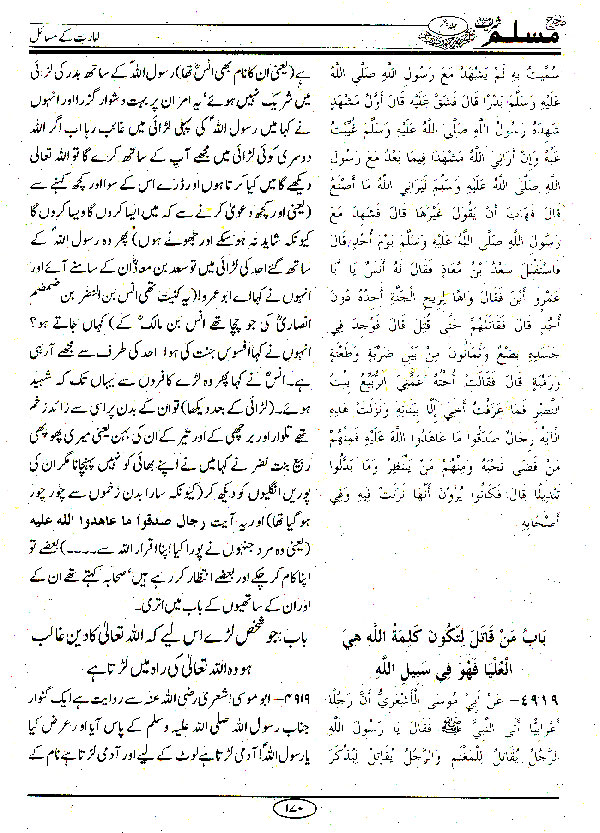 صحیح مسلم شریف
امارت کے مسائل
سُمِّيتُ بِهِ لَمْ يَشْهَدْ مَعَ رَسُولِ اللَّهِ صَلَّى اللهُ
عَلَيْهِ وَسَلَّمَ بَدْرًا قَالَ فَشَقَّ عَلَيْهِ قَالَ أَوَّلُ مَشْهَدٍ
شَهِدَهُ رَسُولُ اللَّهِ صَلَّى اللهُ عَلَيْهِ وَسَلَّمَ غُيِّبْتُ
عَنْهُ وَإِنْ أَرَانِيَ اللَّهُ مَشْهَدًا فِيمَا بَعْدُ مَعَ رَسُولِ
اللَّهِ صَلَّى اللهُ عَلَيْهِ وَسَلَّمَ لَيَرَانِي اللَّهُ مَا أَصْنَعُ
قَالَ فَهَابَ أَنْ يَقُولَ غَيْرَهَا قَالَ فَشَهِدَ مَعَ
رَسُولِ اللَّهِ صَلَّى اللهُ عَلَيْهِ وَسَلَّمَ يَوْمَ أُحُدٍ قَالَ
فَاسْتَقْبَلَ سَعْدُ بْنُ مُعَاذٍ فَقَالَ لَهُ أَنَسٌ يَا أَبَا
عَمْرٍو أَيْنَ فَقَالَ وَاهًا لِرِيحِ الْجَنَّةِ أَجِدُهُ دُونَ
أُحُدٍ قَالَ فَقَاتَلَهُمْ حَتَّى قُتِلَ قَالَ فَوُجِدَ فِي
جَسَدِهِ بِضْعٌ وَثَمَانُونَ مِنْ بَيْنِ ضَرْبَةٍ وَطَعْنَةٍ
وَرَمْيَةٍ قَالَ فَقَالَتْ أُخْتُهُ عَمَّتِيَ الرُّبَيِّعُ بِنْتُ
النَّضْرِ فَمَا عَرَفْتُ أَخِي إِلَّا بِبَنَانِهِ وَنَزَلَتْ هَذِهِ
الْآيَةُ رِجَالٌ صَدَقُوا مَا عَاهَدُوا اللَّهَ عَلَيْهِ فَمِنْهُمْ
مَنْ قَضَى نَحْبَهُ وَمِنْهُمْ مَنْ يَنْتَظِرُ وَمَا بَدَّلُوا
تَبْدِيلًا قَالَ فَكَانُوا يُرَوْنَ أَنَّهَا نَزَلَتْ فِيهِ وَفِي
أَصْحَابِهِ
بَابُ مَنْ قَاتَلَ لِتَكُونَ كَلِمَةُ اللَّهِ هِيَ
الْعُلْيَا فَهُوَ فِي سَبِيلِ اللَّهِ
٤٩١٩- عَنْ أَبِي مُوسَى الْأَشْعَرِيِّ أَنَّ رَجُلًا
أَعْرَابِيًّا أَتَى النَّبِيَّ ﷺ فَقَالَ يَا رَسُولَ اللَّهِ
الرَّجُلُ يُقَاتِلُ لِلْمَغْنَمِ وَالرَّجُلُ يُقَاتِلُ لِيُذْكَرَ
ہے (یعنی ان کا نام بھی انسؓ تھا) رسول اللہؐ کے ساتھ بدر کی لڑائی
میں شریک نہیں ہوئے' یہ امر ان پر بہت دشوار گزرا اور انہوں
نے کہا میں رسول اللہؐ کی پہلی لڑائی میں غائب رہا اب اگر اللہ
دوسری کوئی لڑائی میں مجھے آپ کے ساتھ کرے گا تو اللہ تعالیٰ
دیکھے گا میں کیا کرتا ہوں اور ڈرے اس کے سوا اور کچھ کہنے سے
(یعنی اور کچھ دعویٰ کرنے سے کہ میں ایسا کروں گا ویسا کروں گا
کیونکہ شاید نہ ہو سکے اور جھوٹے ہوں) پھر وہ رسول اللہؐ کے
ساتھ گئے احد کی لڑائی میں تو سعد بن معاذؓ ان کے سامنے آئے اور
انہوں نے کہا اے ابو عمرو! (یہ کنیت تھی انس بن النضر بن ضمضم
انصاریؓ کی جو چچا تھے انس بن مالکؓ کے) کہاں جاتے ہو؟
انہوں نے کہا افسوس جنت کی ہوا احد کی طرف سے مجھے آ رہی
ہے۔ انسؓ نے کہا پھر وہ لڑے کافروں سے یہاں تک کہ شہید
ہوئے۔ (لڑائی کے بعد دیکھا) تو ان کے بدن پر اسی سے زائد زخم
تھے تلوار اور برچھی کے اور تیر کے ان کی بہن یعنی میری پھوپھی
ربیع بنت نضر نے کہا میں نے اپنے بھائی کو نہیں پہچانا مگر ان کی
پوریں انگلیوں کو دیکھ کر (کیونکہ سارا بدن زخموں سے چور چور
ہو گیا تھا) اور یہ آیت رجال صدقوا ما عاهدوا الله عليه
(یعنی وہ مرد جنہوں نے پورا کیا اپنا اقرار اللہ سے ....) بعضے تو
اپنا کام کر چکے اور بعضے انتظار کر رہے ہیں' صحابہ کہتے تھے ان کے
اور ان کے ساتھیوں کے باب میں اتری۔
باب: جو شخص لڑے اس لیے کہ اللہ تعالیٰ کا دین غالب
ہو وہ اللہ تعالیٰ کی راہ میں لڑتا ہے
۴۹۱۹- ابو موسیٰ اشعری رضی اللہ عنہ سے روایت ہے ایک گنوار
جناب رسول اللہ صلی اللہ علیہ وسلم کے پاس آیا اور عرض کیا
یا رسول اللہ! آدمی لڑتا ہے لوٹ کے لیے اور آدمی لڑتا ہے نام کے
۱۷۰